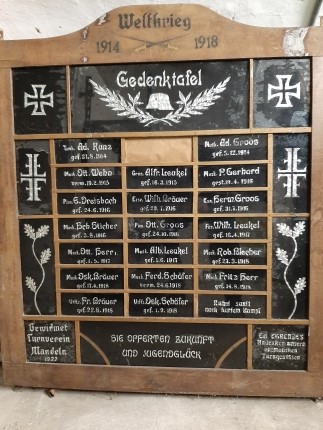 Weltkrieg
1914 1918
Gedenktafel
Ad. Kunz
gef. 21.8.1914
Musk. Ad. Groos
gef. 5.12.1914
Musk. Ott. Weber
verm. 19.2.1915
Gren. Alfr. Leukel
gef. 16.3.1915
Musk. P. Gerhard
gest. 19.4.1916
Pion. G. Dreisbach
gef. 24.6.1916
Wilh. Bräuer
gef. 1916
Kan. Herm. Groos
1916
Musk. Hch. Stücher
gef. 3.8.1916
Pion. Ott. Groos
gef. 24.10.1916
Wilh. Leukel
gef. 1917
Musk. Ott. Herr
gef. 1.5.1917
Musk. Alb. Leukel
gef. 1.6.1917
Musk. Rob. Blecher
gef. 23.3.1918
Musk. Osk. Bräuer
gef. 17.4.1918
Musk. Ferd. Schäfer
verm. 24.6.1918
Musk. Fritz Herr
gef. 14.8.1918
Utffz. Fr. Bräuer
gef. 22.8.1918
Utffz. Osk. Schäfer
gef. 1.9.1918
Ruhet sanft
nach hartem Kampf
Gewidmet
Turnverein
Mandeln
1922
SIE OPFERTEN ZUKUNFT
UND JUGENDGLÜCK